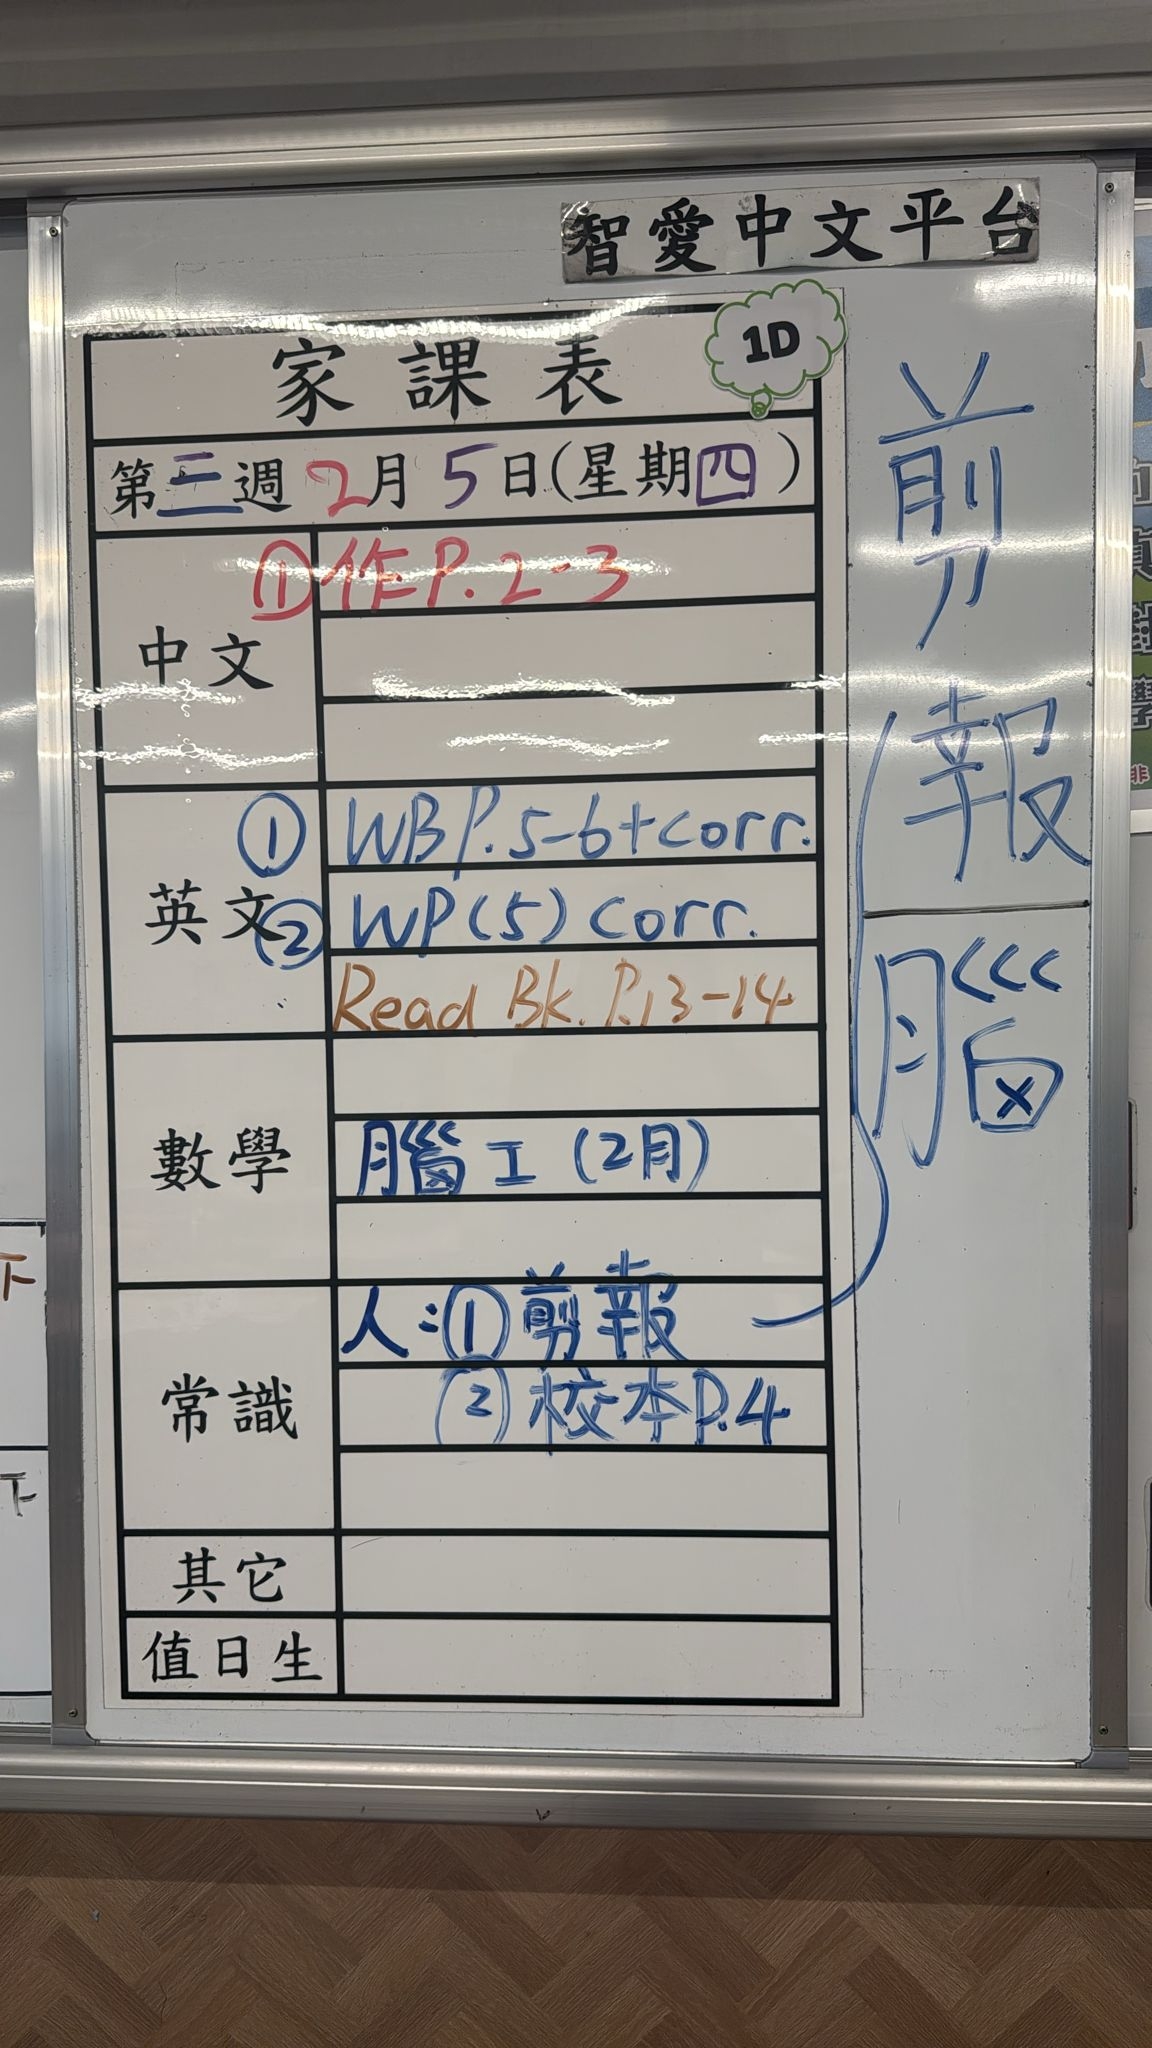 智愛中文平台
家課表
1D
第三週 2月5日(星期四)
中文
①作P.2-3
英文
① WB P.5-6+corr.
② WP(5) corr.
Read Bk. P.13-14
數學
腦工(2月)
常識
人:①剪報
②校本P.4
其它
值日生
剪報
腦
下
下